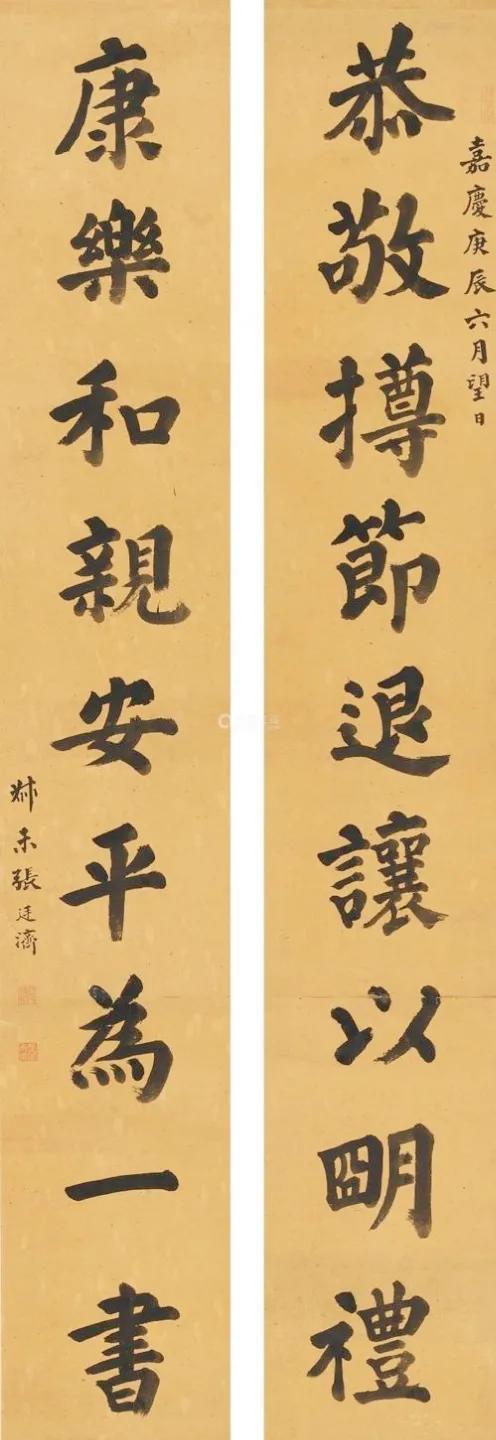 嘉慶庚辰六月望日
恭敬撙節退讓以朙禮
康樂和親安平為一書
叔未張廷濟